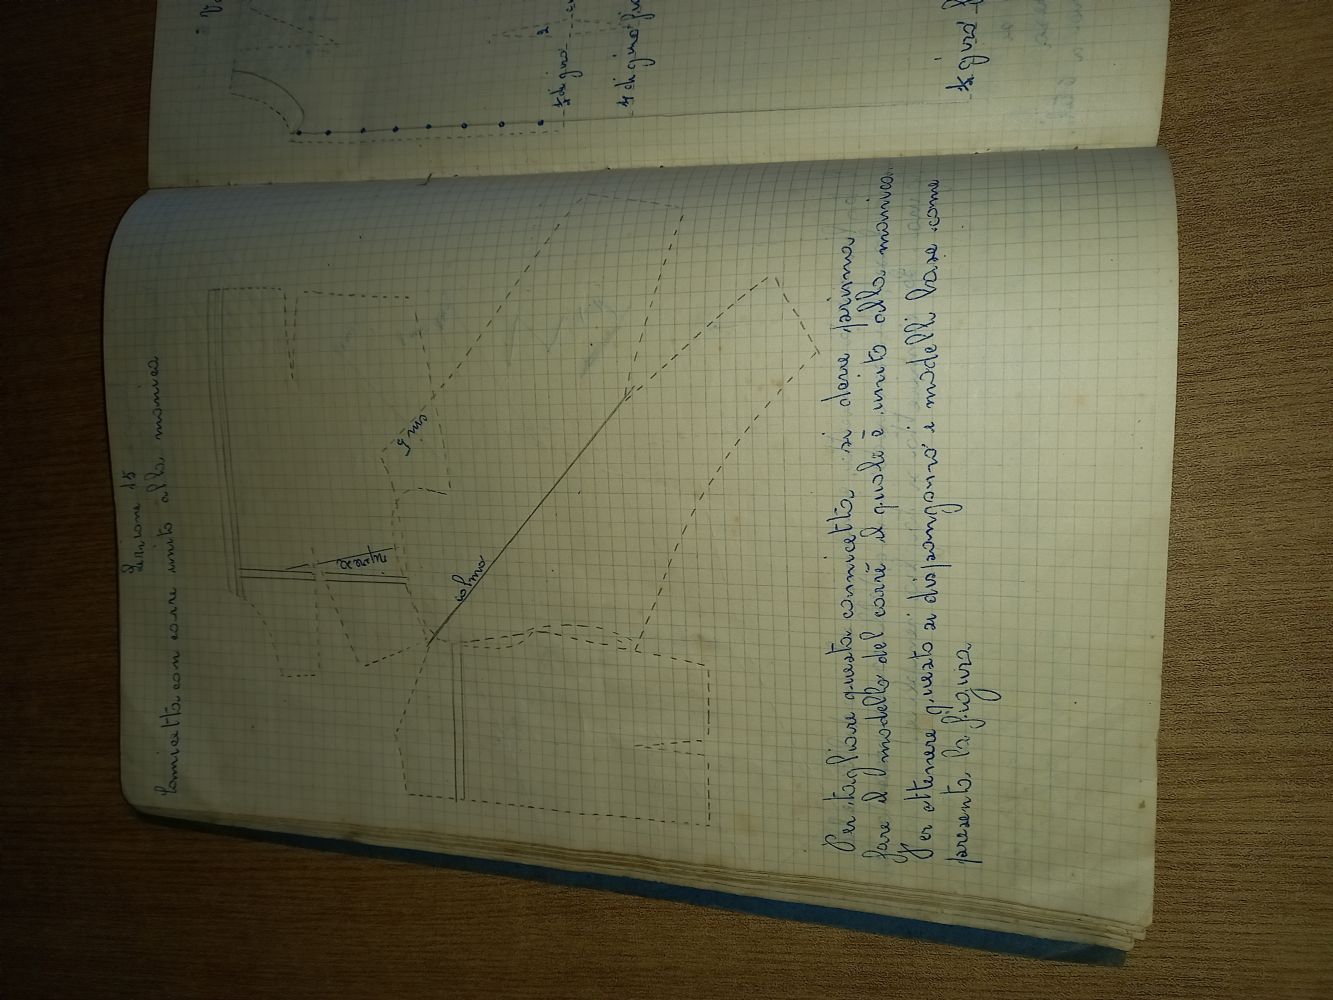 Lezione 15
Camicetta con carré unito alla manica
colmo
Per tagliare questa camicetta si deve prima
fare il modello del carré il quale è unito alla manica.
Per ottenere questo si dispongono i modelli base come
presenta la figura
½ di giro
4 di giro
½ giro